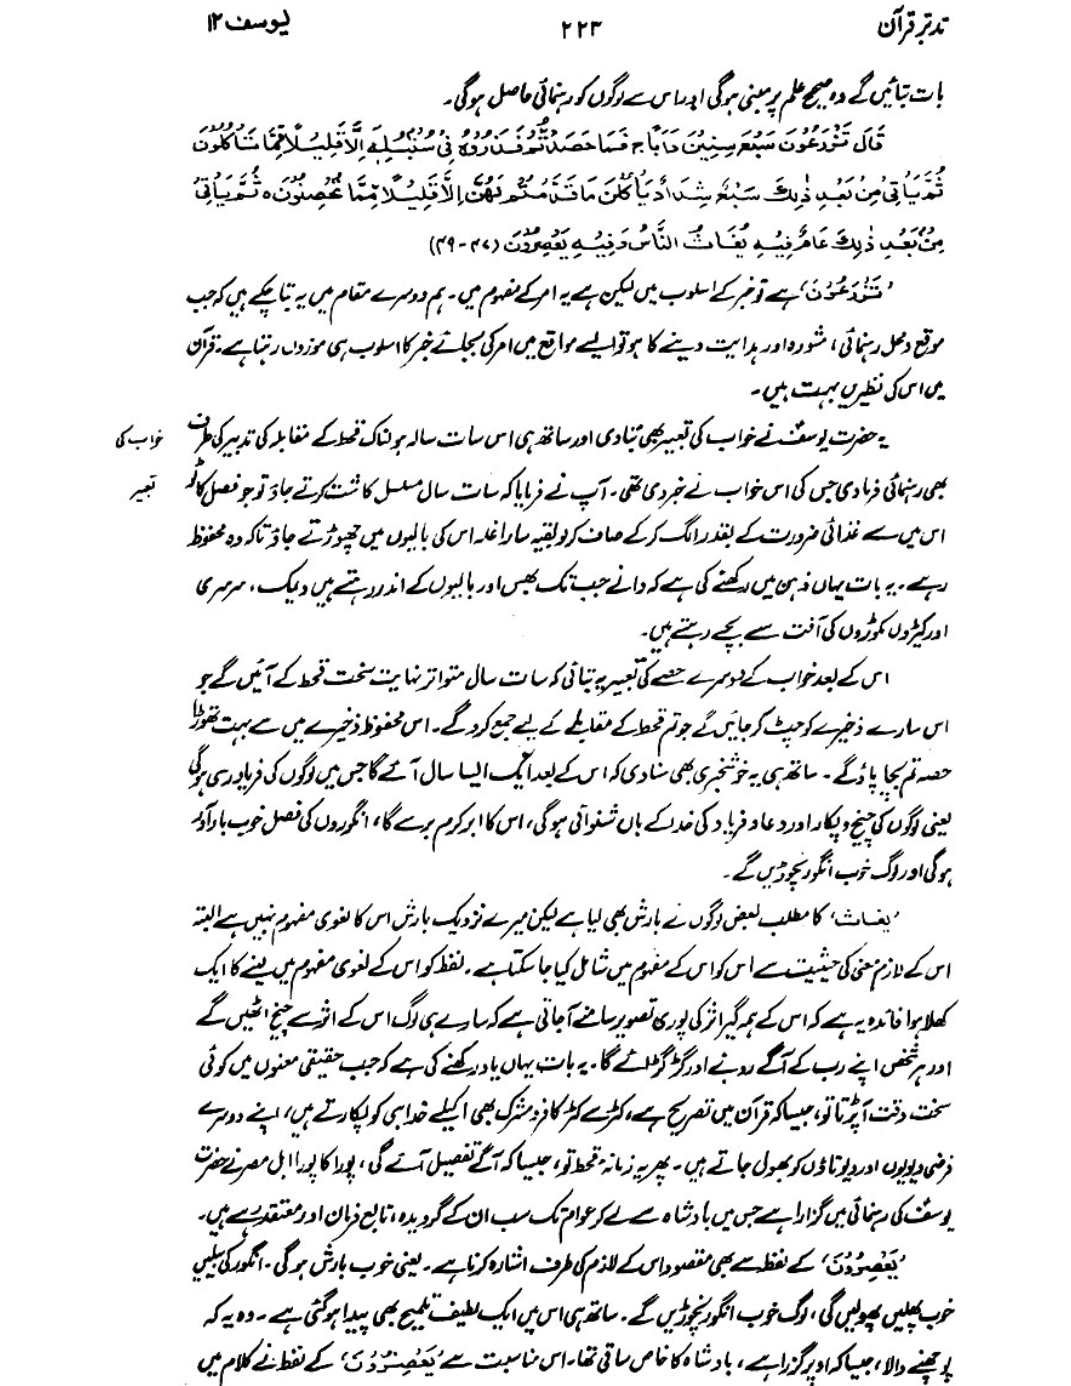 تدبرِ قرآن ۲۲۳ یوسف ۱۲
بات بتائیں گے وہ صحیح علم پر مبنی ہوگی اور اس سے لوگوں کو رہنمائی حاصل ہوگی۔
قَالَ تَزْرَعُوْنَ سَبْعَ سِنِيْنَ دَاَبًا ج فَمَا حَصَدْتُّمْ فَذَرُوْهُ فِيْ سُنْۢبُلِهٖ اِلَّا قَلِيْلًا مِّمَّا تَاْكُلُوْنَ
ثُمَّ يَاْتِيْ مِنْۢ بَعْدِ ذٰلِكَ سَبْعٌ شِدَادٌ يَّاْكُلْنَ مَا قَدَّمْتُمْ لَهُنَّ اِلَّا قَلِيْلًا مِّمَّا تُحْصِنُوْنَ ه ثُمَّ يَاْتِيْ
مِنْۢ بَعْدِ ذٰلِكَ عَامٌ فِيْهِ يُغَاثُ النَّاسُ وَفِيْهِ يَعْصِرُوْنَ (۴۷-۴۹)
'تَزْرَعُوْنَ' ہے تو خبر کے اسلوب میں لیکن ہے یہ امر کے مفہوم میں۔ ہم دوسرے مقام میں یہ بتا چکے ہیں کہ جب
موقع و محل رہنمائی، مشورہ اور ہدایت دینے کا ہو تو ایسے مواقع میں امر کی بجائے خبر کا اسلوب ہی موزوں رہتا ہے۔ قرآن
میں اس کی نظیریں بہت ہیں۔
یہ حضرت یوسفؑ نے خواب کی تعبیر بھی بتا دی اور ساتھ ہی اس سات سالہ ہولناک قحط کے مقابلہ کی تدبیر کی طرف
خواب کی
بھی رہنمائی فرما دی جس کی اس خواب نے خبر دی تھی۔ آپ نے فرمایا کہ سات سال مسلسل کاشت کرتے جاؤ تو جو فصل کاٹو
تعبیر
اس میں سے غذائی ضرورت کے بقدر الگ کر کے صاف کر لو بقیہ سارا غلہ اس کی بالیوں میں چھوڑتے جاؤ تاکہ وہ محفوظ
رہے۔ یہ بات یہاں ذہن میں رکھنے کی ہے کہ دانے جب تک بھس اور بالیوں کے اندر رہتے ہیں دیمک، سرسری
اور کیڑوں مکوڑوں کی آفت سے بچے رہتے ہیں۔
اس کے بعد خواب کے دوسرے حصے کی تعبیر یہ بتائی کہ سات سال متواتر نہایت سخت قحط کے آئیں گے جو
اس سارے ذخیرے کو چٹ کر جائیں گے جو تم قحط کے مقابلے کے لیے جمع کرو گے۔ اس محفوظ ذخیرے میں سے بہت تھوڑا
حصہ تم بچا پاؤ گے۔ ساتھ ہی یہ خوشخبری بھی سنا دی کہ اس کے بعد ایک ایسا سال آئے گا جس میں لوگوں کی فریاد رسی ہوگی
یعنی لوگوں کی چیخ و پکار اور دعا و فریاد کی خدا کے ہاں شنوائی ہوگی، اس کا ابر کرم برسے گا، انگوروں کی فصل خوب بارآور
ہوگی اور لوگ خوب انگور نچوڑیں گے۔
'يغاث' کا مطلب بعض لوگوں نے بارش بھی لیا ہے لیکن میرے نزدیک بارش اس کا لغوی مفہوم نہیں ہے البتہ
اس کے لازم معنی کی حیثیت سے اس کو اس کے مفہوم میں شامل کیا جا سکتا ہے۔ لفظ کو اس کے لغوی مفہوم میں لینے کا ایک
کھلا ہوا فائدہ یہ ہے کہ اس کے ہمہ گیر اثر کی پوری تصویر سامنے آ جاتی ہے کہ سارے ہی لوگ اس کے اثر سے چیخ اٹھیں گے
اور ہر شخص اپنے رب کے آگے رونے اور گڑگڑائے گا۔ یہ بات یہاں یاد رکھنے کی ہے کہ جب حقیقی معنوں میں کوئی
سخت وقت آ پڑتا تو، جیسا کہ قرآن میں تصریح ہے، کٹر سے کٹر کافر و مشرک بھی اکیلے خدا ہی کو پکارتے ہیں، اپنے دوسرے
فرضی دیویوں اور دیوتاؤں کو بھول جاتے ہیں۔ پھر یہ زمانۂ قحط تو، جیسا کہ آگے تفصیل آئے گی، پورا کا پورا اہل مصر نے حضرت
یوسفؑ کی رہنمائی میں گزارا ہے جس میں بادشاہ سے لے کر عوام تک سب ان کے گرویدہ، تابع فرمان اور معتقد رہے ہیں۔
'يَعْصِرُوْنَ' کے لفظ سے بھی مقصود اس کے لازم کی طرف اشارہ کرنا ہے۔ یعنی خوب بارش ہوگی۔ انگور کی بیلیں
خوب پھلیں پھولیں گی، لوگ خوب انگور نچوڑیں گے۔ ساتھ ہی اس میں ایک لطیف تلمیح بھی پیدا ہوگئی ہے۔ وہ یہ کہ
پوچھنے والا، جیسا کہ اوپر گزرا ہے، بادشاہ کا خاص ساقی تھا۔ اس مناسبت سے 'يَعْصِرُوْنَ' کے لفظ نے کلام میں